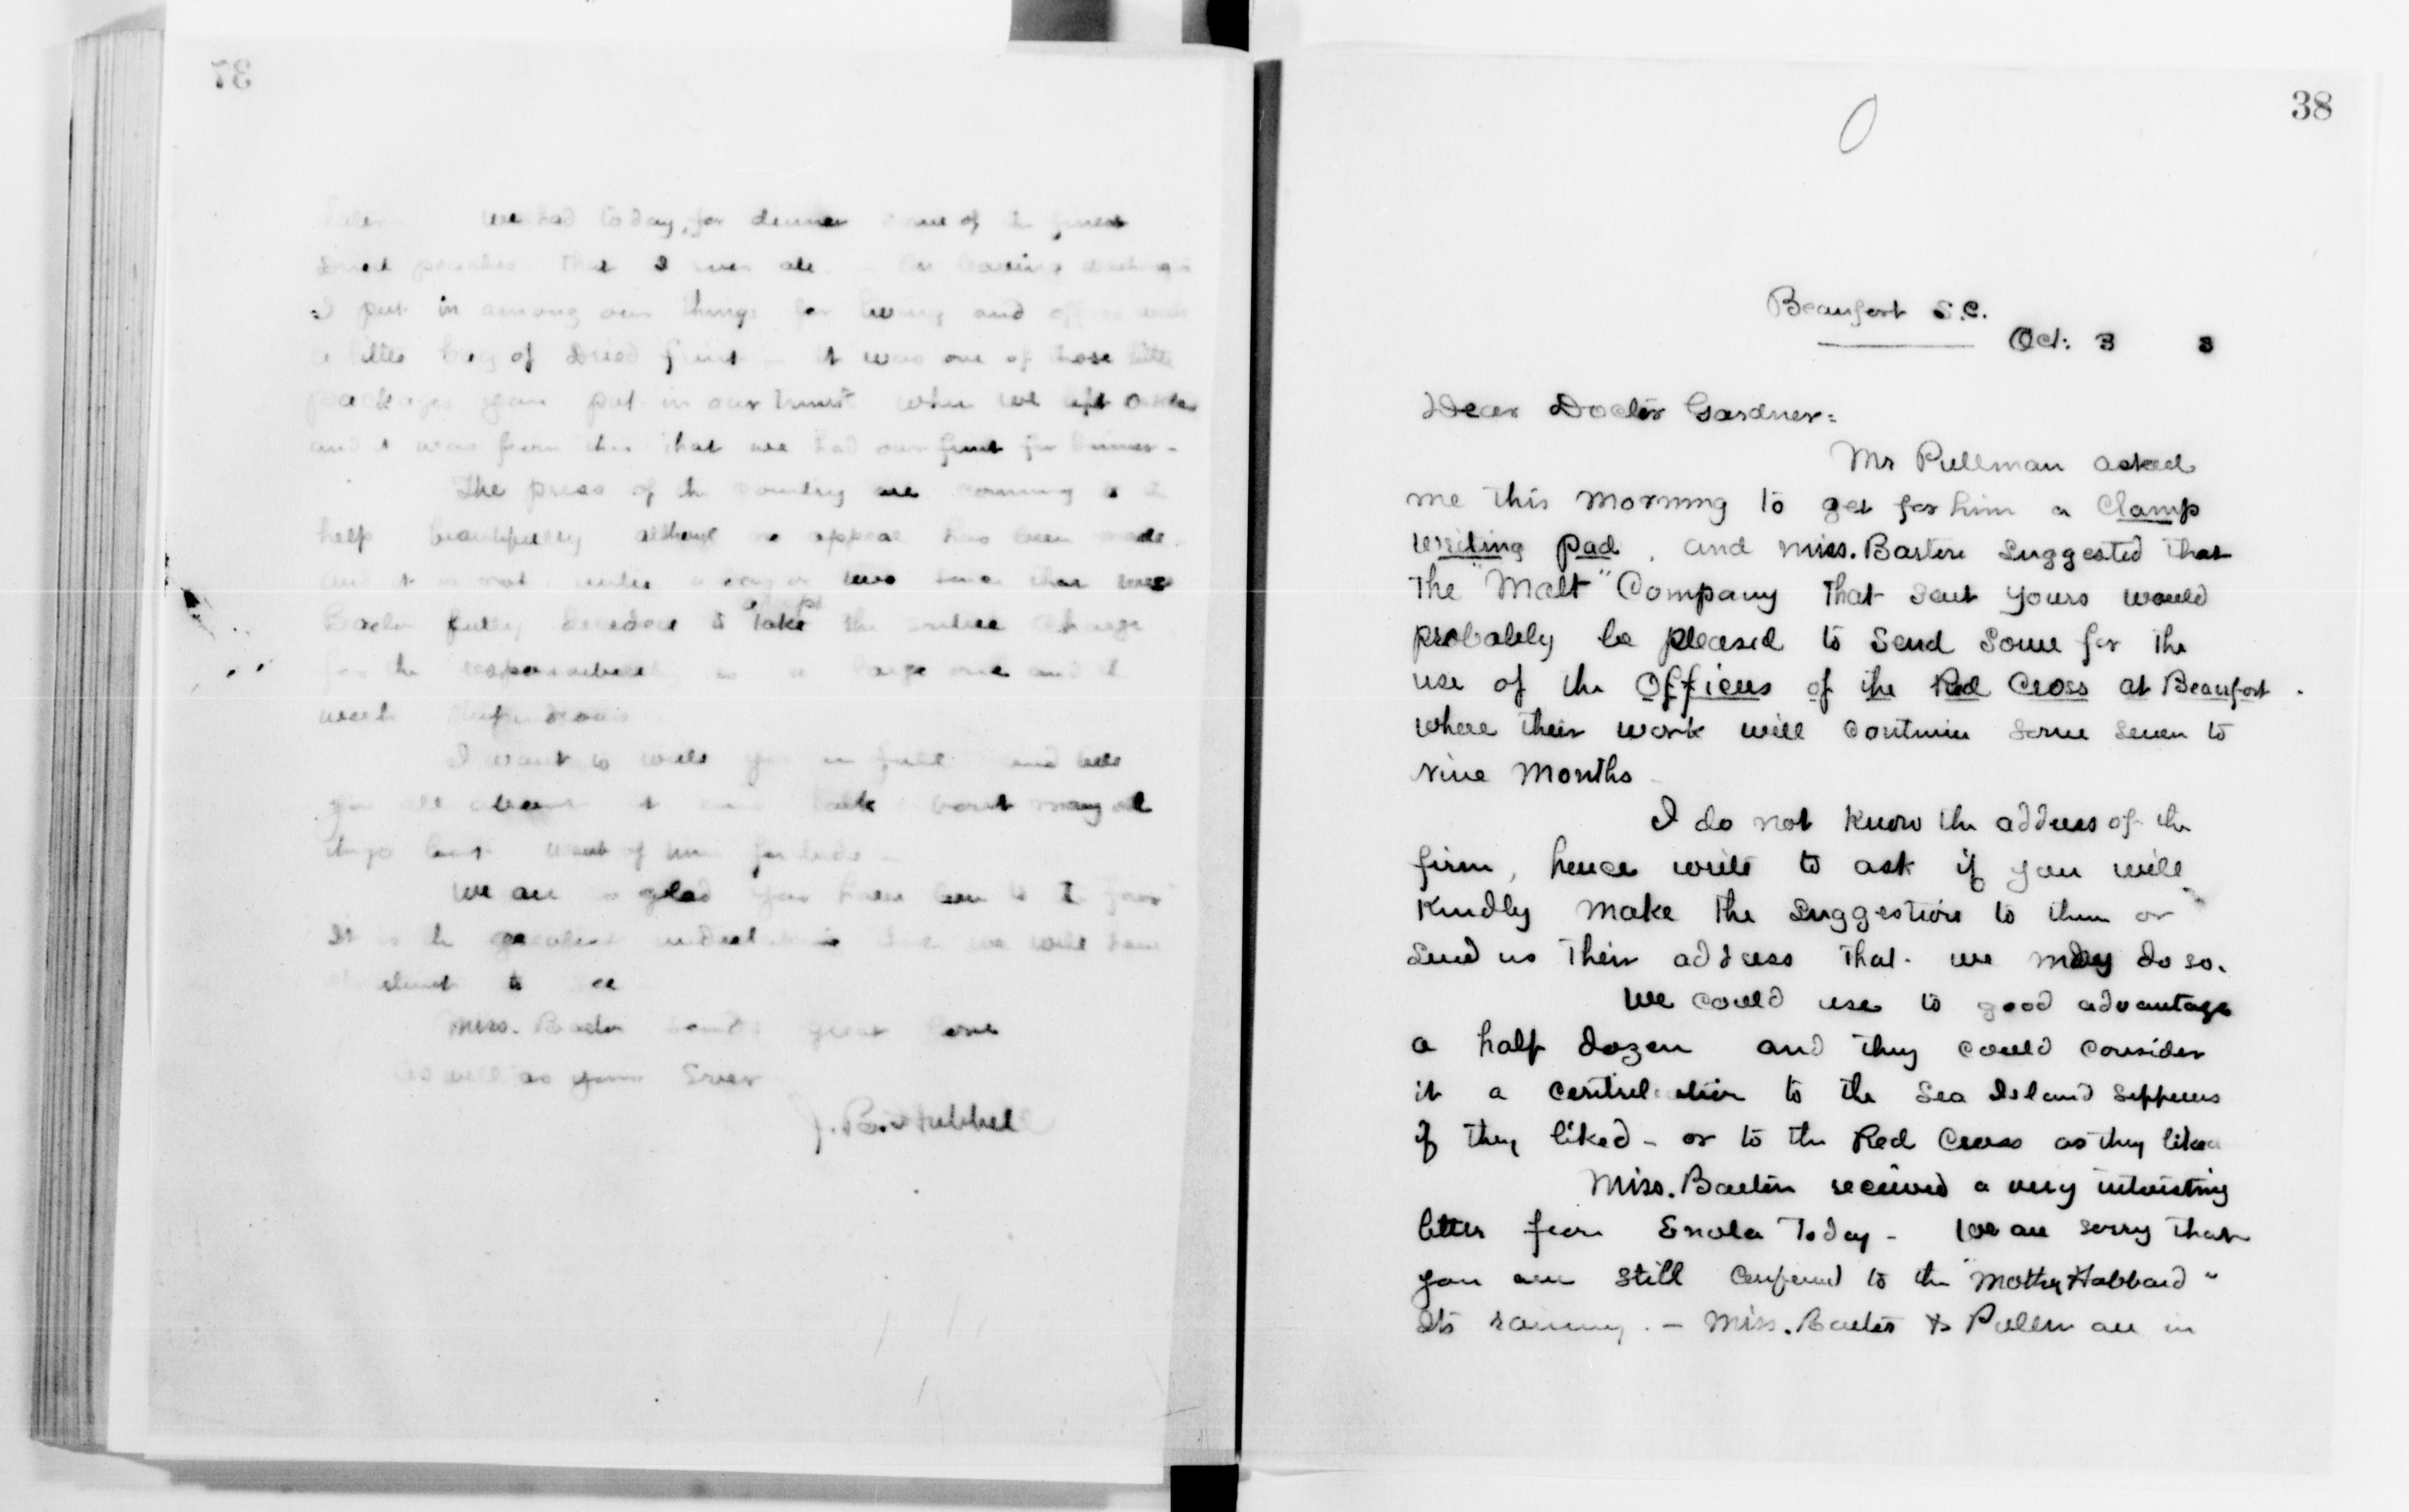 37
we had today, for dinner some of the finest
dried peaches that I ever ate
I put in among our things for living and
a little bag of dried fruit - it was one of those little
packages you put in our trunk when we left
and it was from this that we had our fruit for dinner -
The press of the country are coming to the
help beautifully although no appeal has been made
and it is not until a day or two since that Miss
accept
Barton fully decided to take the entire charge
for the responsibility is a large one and the
work
I want to write you in full and tell
you all about it
want of time forbids -
We are so glad you have been to the fair
It is the greatest we will have
to see
Miss. Barton sends great love
as well as yours Ever
J. B. Hubbell
38
Beaufort S.C.
Oct: 3 3
Dear Doctor Gardner:
Mr Pullman asked
me this morning to get for him a Clamp
writing pad, and Miss. Barton suggested that
the "Malt" Company that sent yours would
probably be pleased to send some for the
use of the Officers of the Red Cross at Beaufort.
where their work will continue some seven to
nine months
I do not know the address of the
firm, hence write to ask if you will
kindly make the suggestion to them or
send us their address that we may do so.
We could use to good advantage
a half dozen and they could consider
it a contribution to the Sea Island Sufferers
if they liked - or to the Red Cross as they liked
Miss. Barton received a very interesting
letter from Enola Today - We are sorry that
you are still confined to the "Mother Habbard"
Its raining. - Miss. Barton & Pullm are in